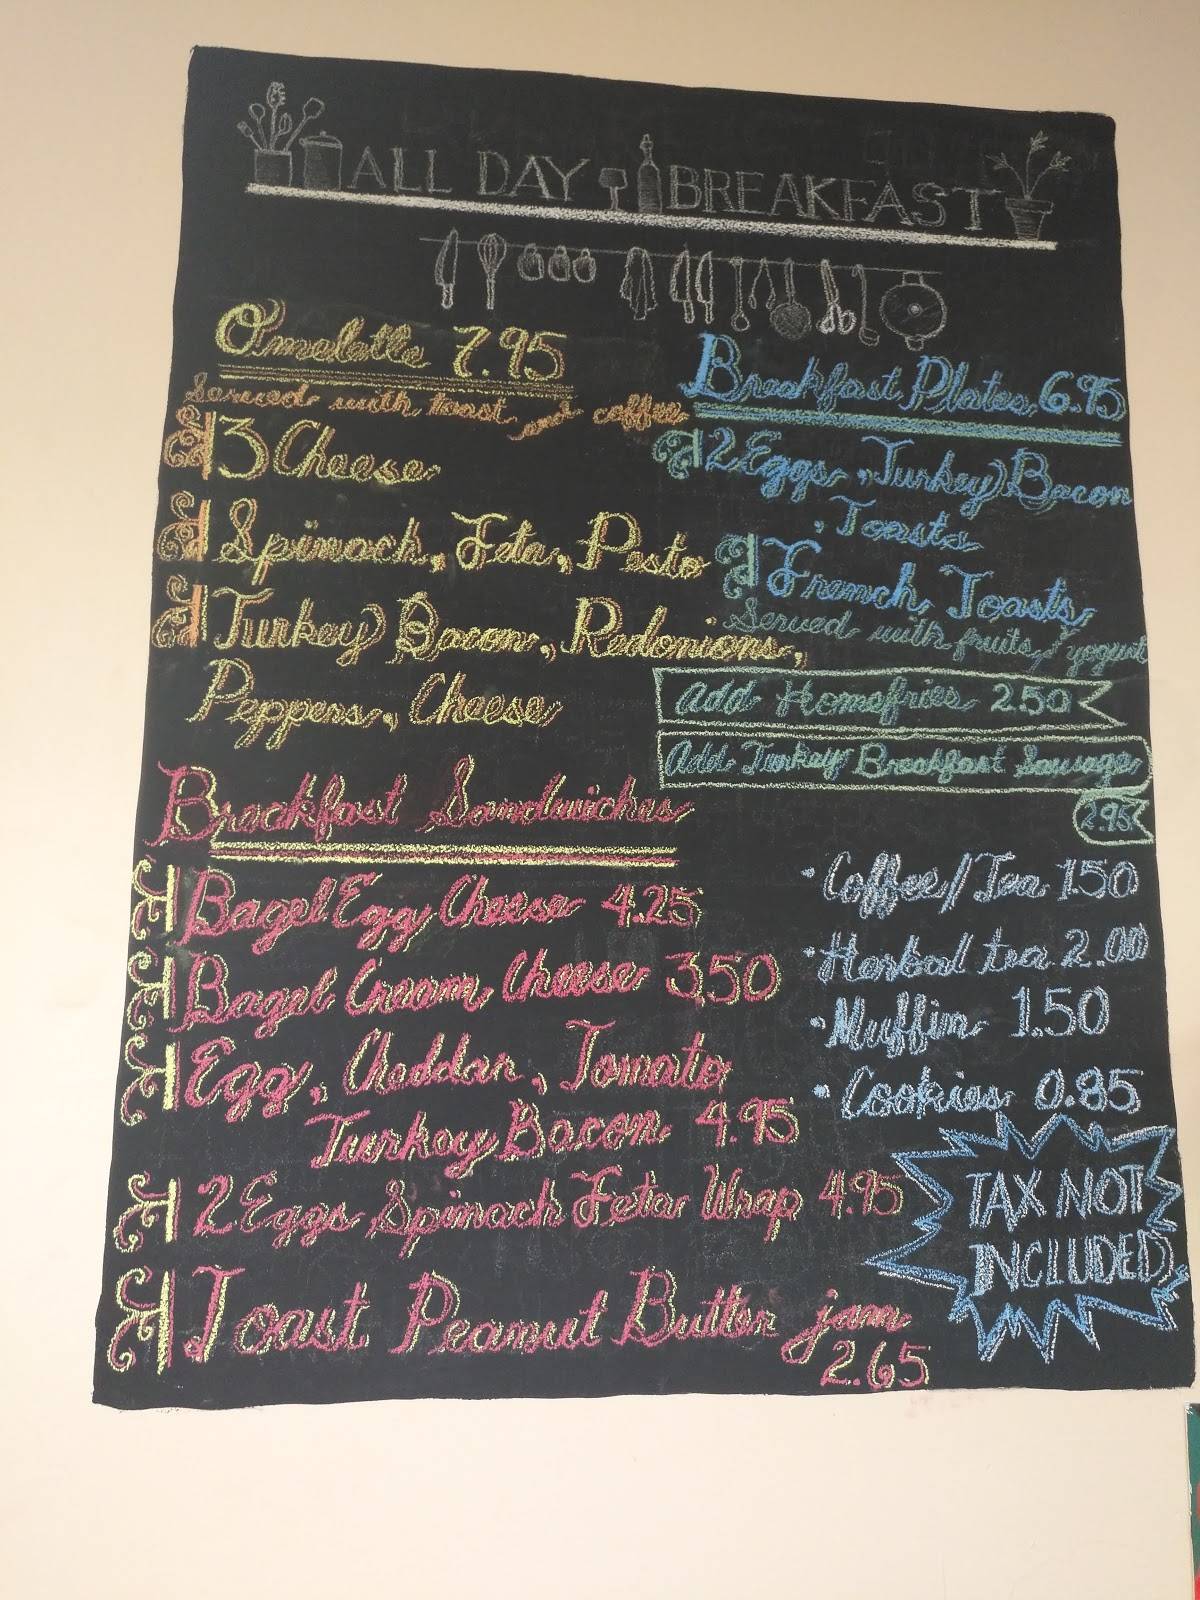 ALL DAY BREAKFAST
Omelette 7.95
Served with toast and coffee
3 Cheese
Spinach, Feta, Pesto
Turkey Bacon, Redonions,
Peppers, Cheese
Breakfast Plates 6.95
2 Eggs, Turkey Bacon
, Toasts
French, Toasts,
Served with fruits, yogurt
Add Homefries 2.50
Add Turkey Breakfast Sausage
2.95
Breakfast Sandwiches
Bagel Egg Cheese 4.25
Bagel Cream Cheese 3.50
Egg, Cheddar, Tomato
Turkey Bacon 4.95
2 Eggs, Spinach Feta Wrap 4.95
Toast Peanut Butter jam
2.65
·Coffee/Tea 1.50
·Herbal tea 2.00
·Muffin 1.50
·Cookies 0.85
TAX NOT
INCLUDED